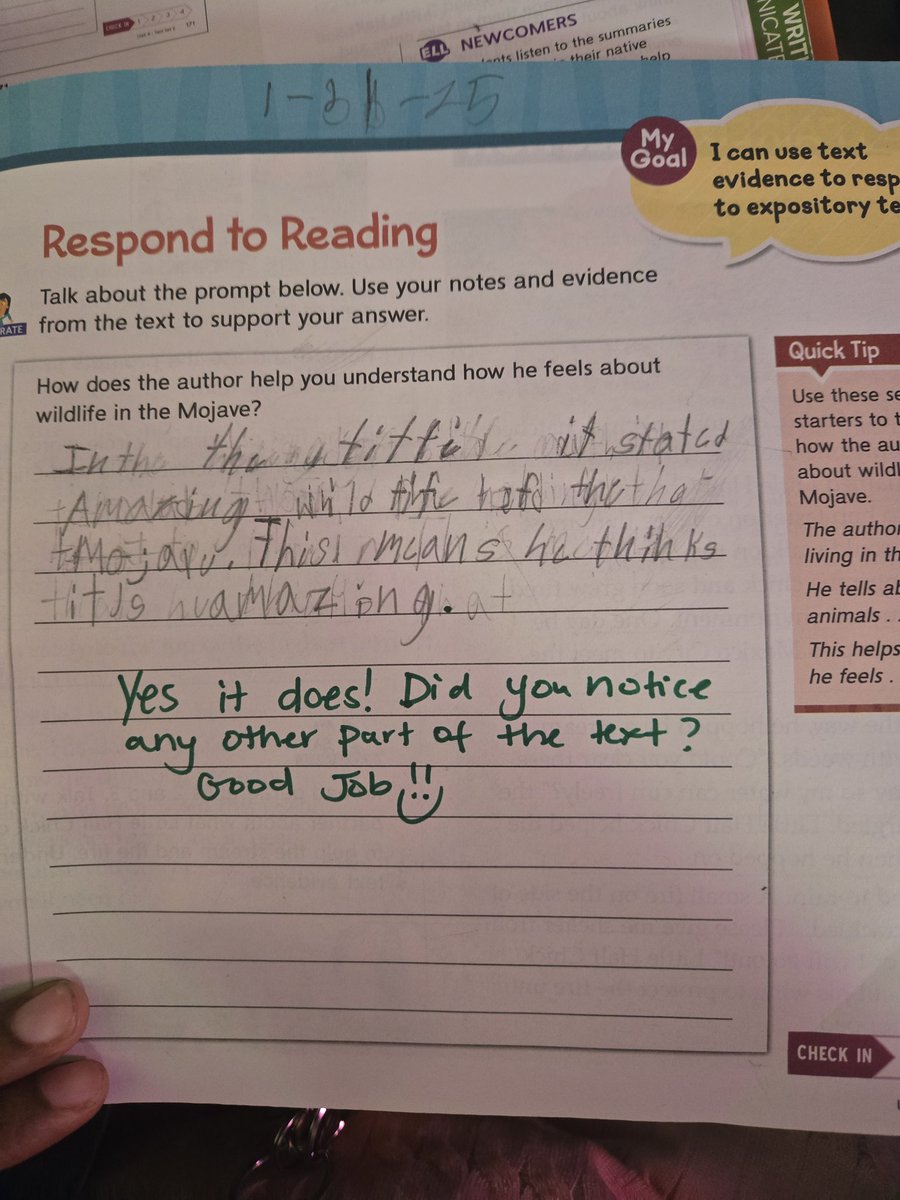 CHECK IN 1 2 3 4
171
ELL NEWCOMERS
listen to the summaries
their native
help
WRIT
NICAT
1-31-25
My
Goal
I can use text
evidence to resp
to expository te
Respond to Reading
Talk about the prompt below. Use your notes and evidence
from the text to support your answer.
RATE
How does the author help you understand how he feels about
wildlife in the Mojave?
In the it stated
Amazing wild the
Mojave. This means he thinks
it is amazing.
Yes it does! Did you notice
any other part of the text?
Good Job!!
Quick Tip
Use these se
starters to t
how the au
about wildl
Mojave.
The author
living in th
He tells ab
animals . .
This helps
he feels .
CHECK IN